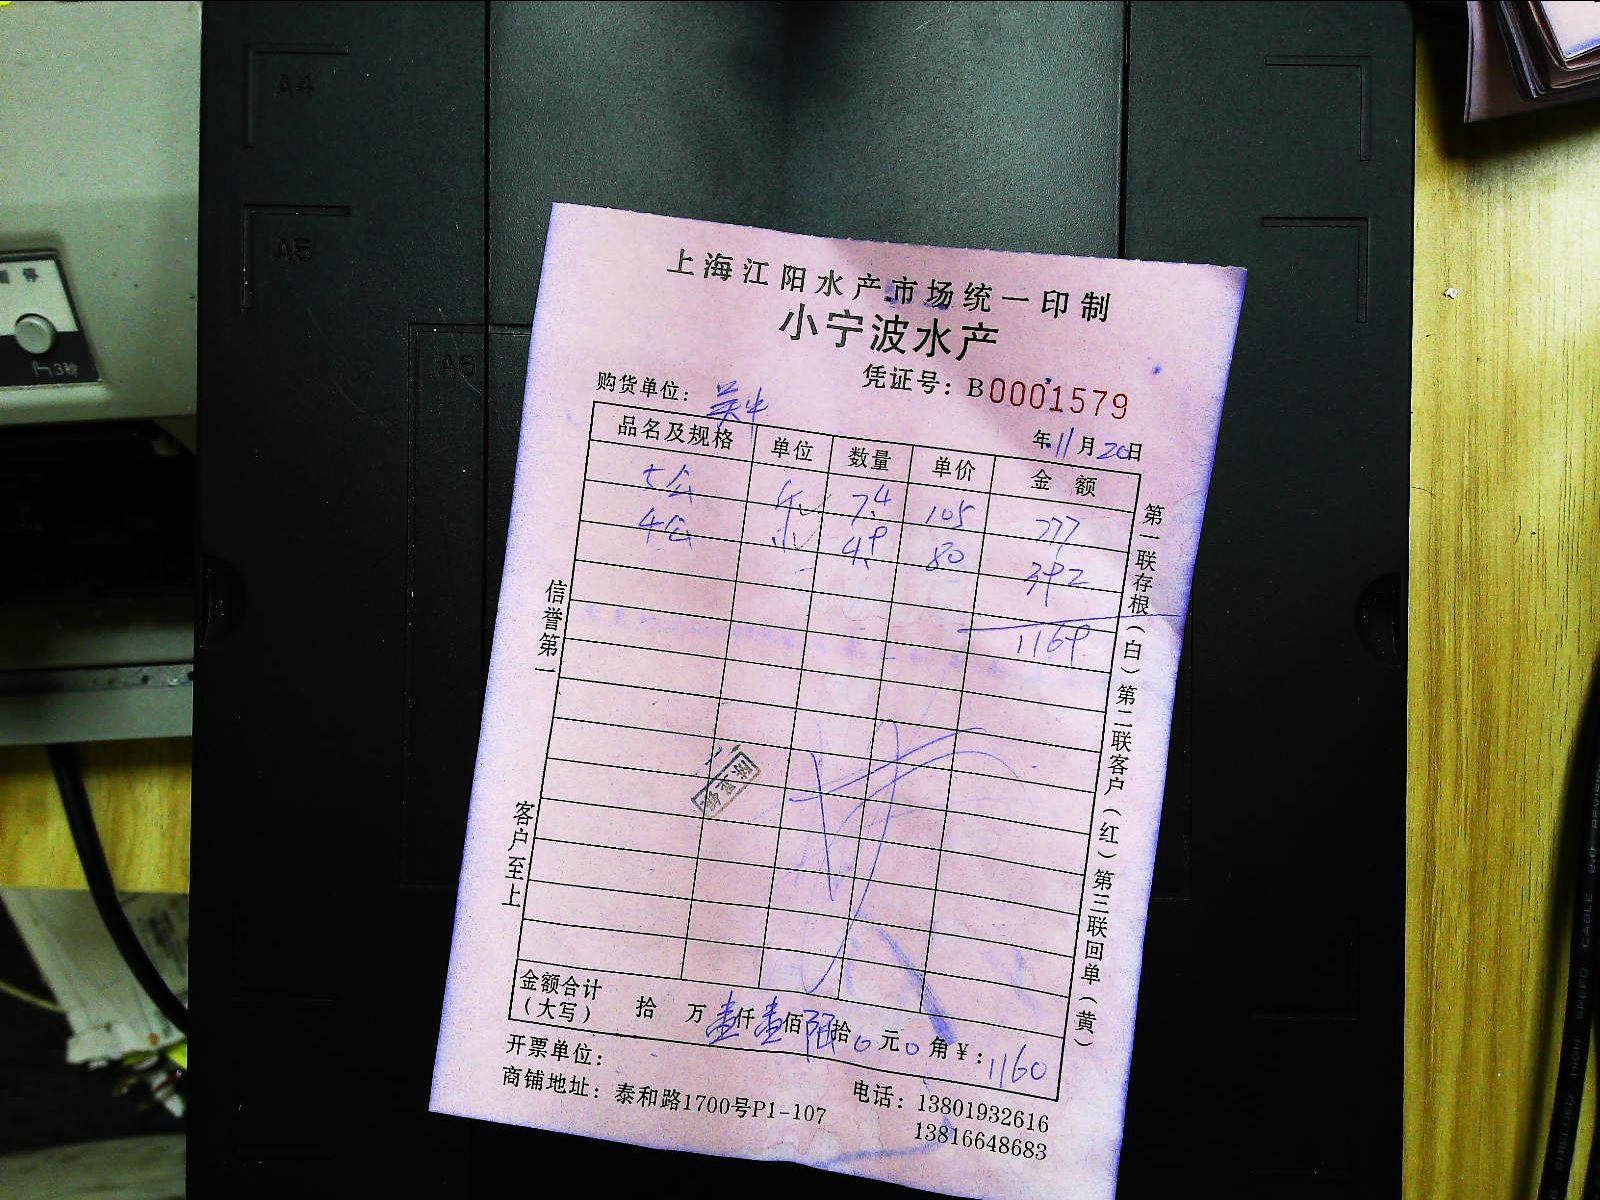 A4
A5
A6
上海江阳水产市场统一印制
小宁波水产
凭证号：B0001579
购货单位：
年11月20日
品名及规格 单位 数量 单价 金额
7.4 105 777
4公 4.9 80 392
1169
信誉第一 客户至上
第一联存根（白）第二联客户（红）第三联回单（黄）
金额合计（大写） 拾 万壹仟壹佰陆拾0元0角￥：1160
开票单位：
商铺地址：泰和路1700号P1-107
电话：13801932616
13816648683